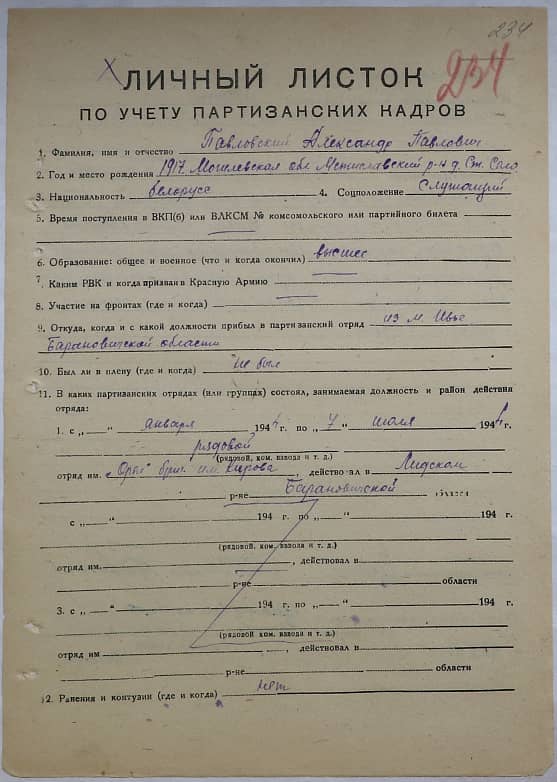 234
х ЛИЧНЫЙ ЛИСТОК 234
ПО УЧЕТУ ПАРТИЗАНСКИХ КАДРОВ
1. Фамилия, имя и отчество Павловский Александр Павлович
2. Год и место рождения 1917 Могилевская обл Мстиславский р-н д. Ст. Село
3. Национальность белорусс 4. Соцположение Служащий
5. Время поступления в ВКП(б) или ВЛКСМ № комсомольского или партийного билета
6. Образование: общее и военное (что и когда окончил) высшее
7. Каким РВК и когда призван в Красную Армию
8. Участие на фронтах (где и когда)
9. Откуда, когда и с какой должности прибыл в партизанский отряд из м. Ивье
Барановичской области
10. Был ли в плену (где и когда) не был
11. В каких партизанских отрядах (или группах) состоял, занимаемая должность и район действия
отряда:
1. с „ “ января 1944 г. по „7“ июля 1944 г.
рядовой
(рядовой, ком. взвода и т. д.)
отряд им. бриг. им. Кирова, действовал в Лидском
р-не Барановичской области
с „ “ 194 г. по „ “ 194 г.
(рядовой, ком. взвода и т. д.)
отряд им. , действовал в
р-не области
3. с „ “ 194 г. по „ “ 194 г.
(рядовой ком. взвода и т. д.)
отряд им , действовал в
р-не области
12. Ранения и контузии (где и когда) нет